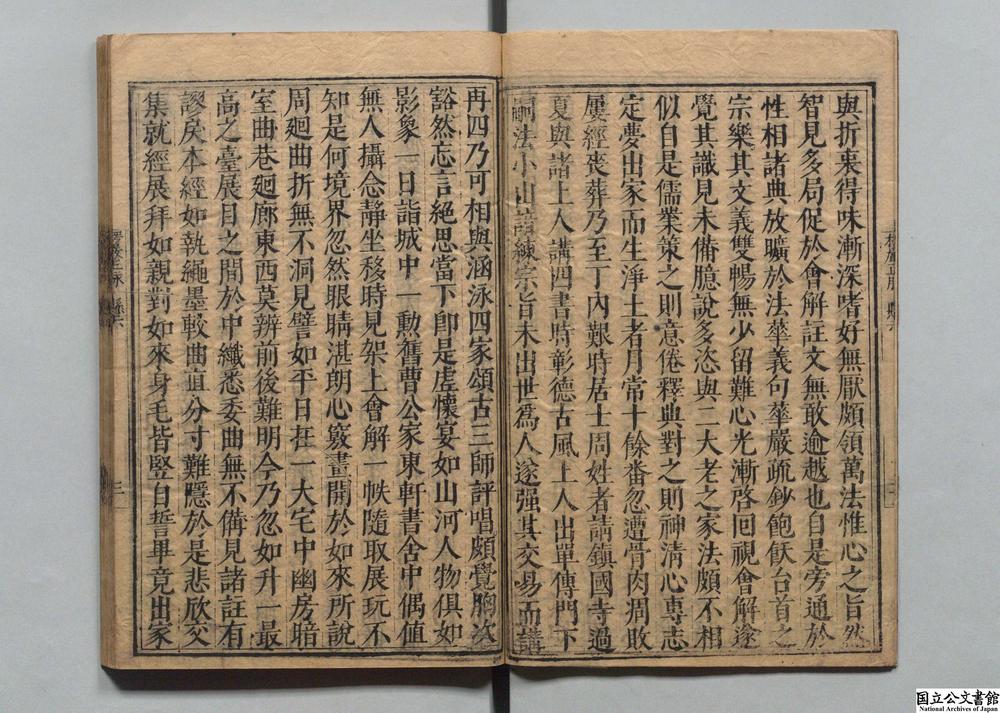 與折衷得味漸深嗜好無厭頗領萬法惟心之旨然
智見多局促於會解註文無敢逾越也自是旁通於
性相諸典放曠於法華義句華嚴疏鈔飽飫台首之
宗樂其文義雙暢無少留難心光漸啓回視會解遂
覺其識見未備臆說多恣與二大老之家法頗不相
似自是儒業策之則意倦釋典對之則神清心專志
定要出家而生淨土者月常十餘番忽遭骨肉凋敗
屢經喪葬乃至丁內艱時居士周姓者請鎮國寺過
夏與諸上人講四書時彰德古風上人出單傳門下
嗣法小山諳練宗旨未出世為人遂强其交易而講
再四乃可相與涵泳四家頌古三師評唱頗覺胸次
豁然忘言絕思當下卽是虛懷宴如山河人物俱如
影象一日詣城中一勳舊曹公家東軒書舍中偶值
無人攝念靜坐移時見架上會解一帙隨取展玩不
知是何境界忽然眼睛湛朗心竅晝開於如來所說
周廻曲折無不洞見譬如平日在一大宅中幽房暗
室曲巷廻廊東西莫辨前後難明今乃忽如升一最
高之臺展目之間於中纖悉委曲無不備見諸註有
謬戾本經如執繩墨較曲直分寸難隱於是悲欣交
集就經展拜如親對如來身毛皆竪自誓畢竟出家
国立公文書館
National Archives of Japan